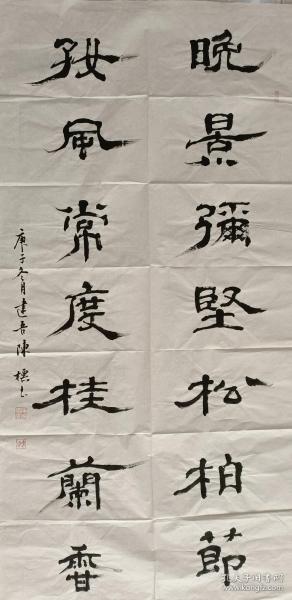 晚景彌堅松柏節
好風常度桂蘭香
庚子冬月建吾陳
孔夫子旧书网
www.kongfz.com